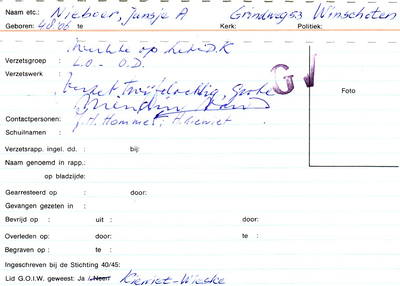 Naam etc.: Nieboer, Jansje A Grindweg 53 Winschoten
Geboren: 4 8 '06 te Kerk: Politiek:
werkte op L.O. D.K
Verzetsgroep : L.O - O.D.
Verzetswerk :
Verzet Twijfelachtig, Grote
G
Foto
Contactpersonen: J.H. Hommes, H Kiewiet
Schuilnamen :
Verzetsrapp. ingel. dd. : bij:
Naam genoemd in rapp.:
op bladzijde:
Gearresteerd op : door:
Gevangen gezeten in :
Bevrijd op : uit : door:
Overleden op: te : door:
Begraven op : te :
Ingeschreven bij de Stichting 40/45:
Lid G.O.I.W. geweest: Ja / Neen Kiewiet-Wiecke